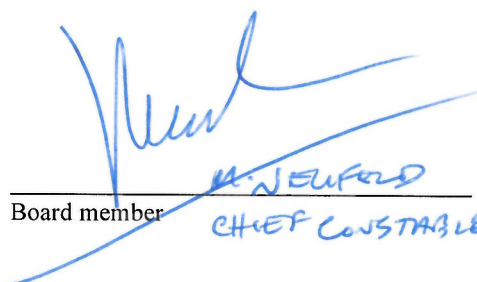 M. NEUFELD
Board member
CHIEF CONSTABLE